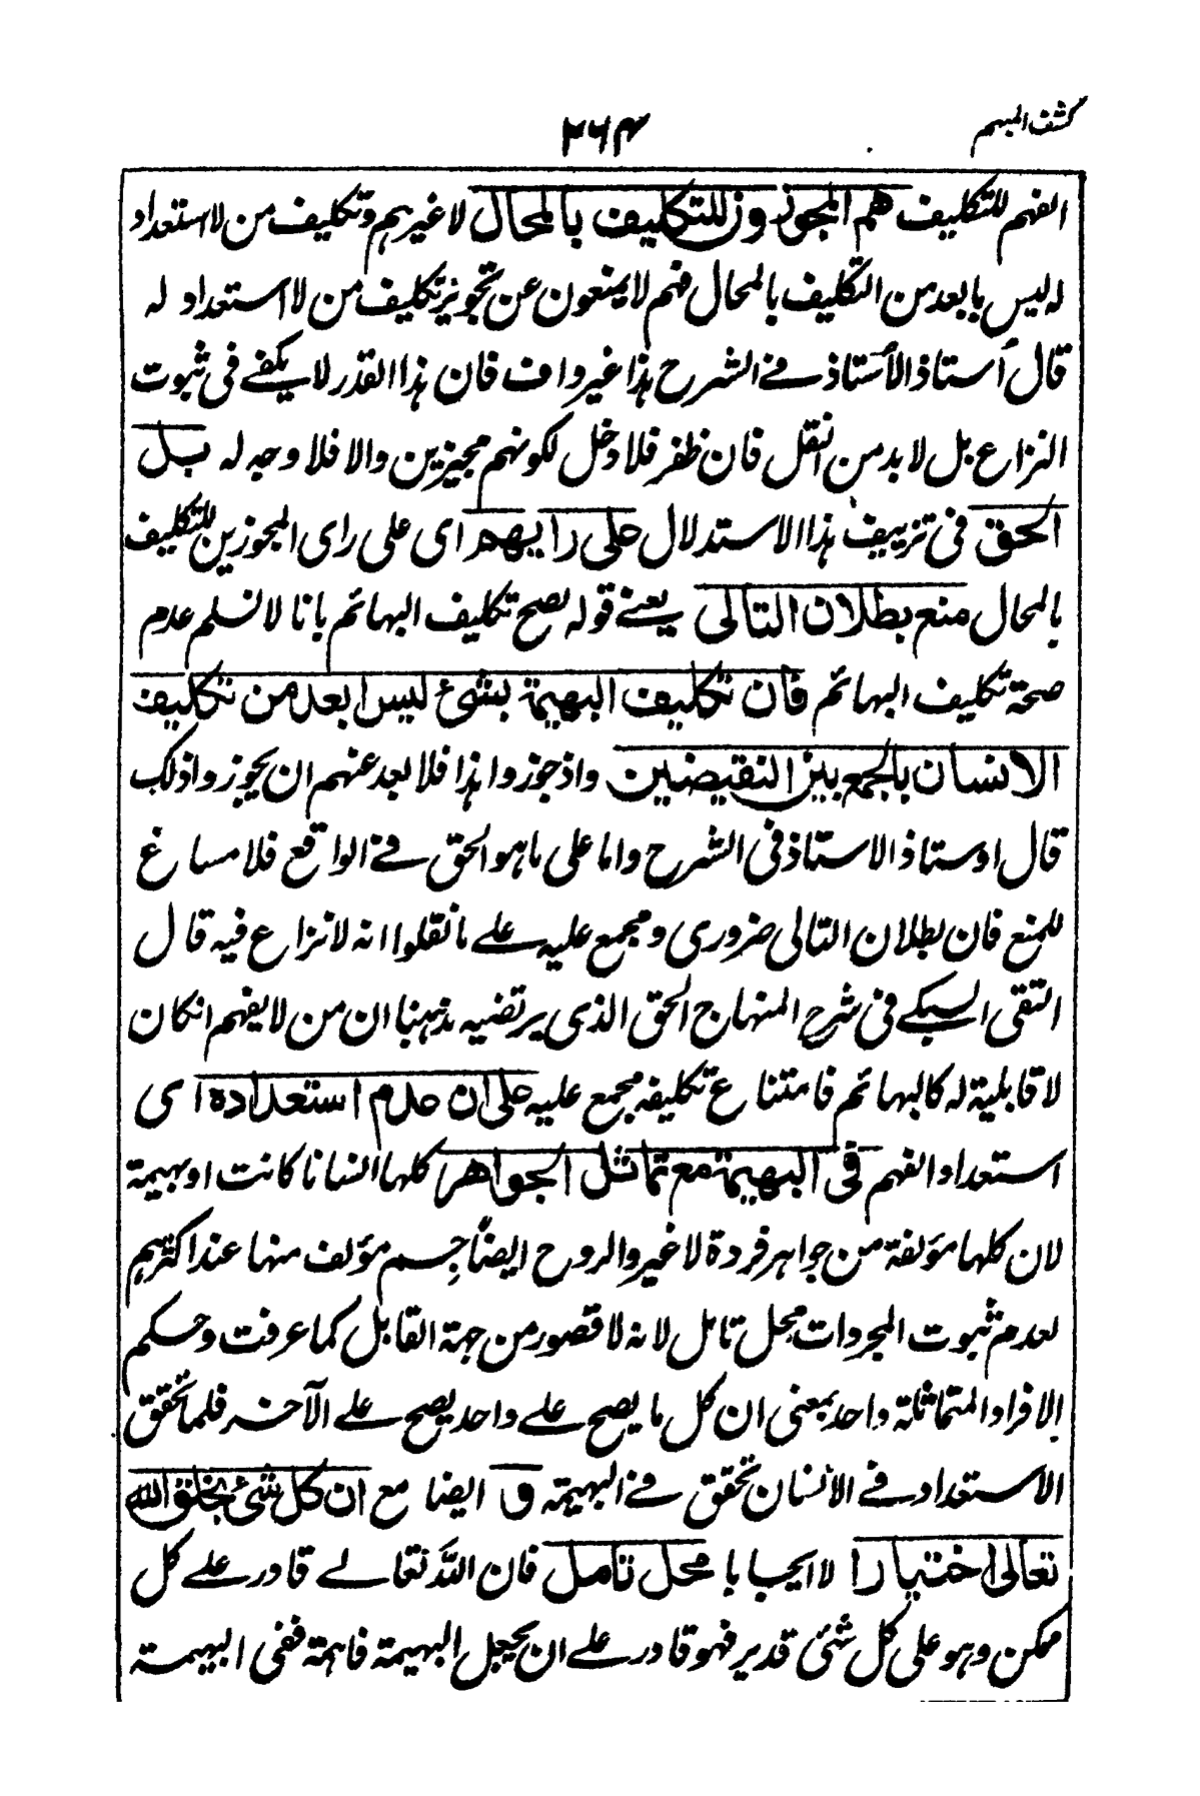 كشف المبهم
٢٦٤
الفهم للتكليف هم المجوزون للتكليف بالمحال لا غيرهم وتكليف من لا استعداد
له ليس بابعد من التكليف بالمحال فهم لا يمنعون عن تجويز تكليف من لا استعداد له
قال أستاذ الأستاذ في الشرح هذا غير واف فان هذا القدر لا يكفي في ثبوت
النزاع بل لا بد من النقل فان ظفر فلا دخل لكونهم مجيزين والا فلا وجه له بل
الحق في تزييف هذا الاستدلال على رايهم اى على راى المجوزين للتكليف
بالمحال منع بطلان التالى يعني قوله يصح تكليف البهائم بانا لا نسلم عدم
صحة تكليف البهائم فان تكليف البهيمة بشئ ليس ابعد من تكليف
الانسان بالجمع بين النقيضين واذ جوزوا هذا فلا بعد عنهم ان يجوزوا ذلك
قال اوستاذ الاستاذ فى الشرح واما على ما هو الحق في الواقع فلا مساغ
للمنع فان بطلان التالى ضرورى ومجمع عليه على ما نقلوا انه لا نزاع فيه قال
التقى السبكي فى شرح المنهاج الحق الذى يرتضيه مذهبنا ان من لا يفهم انكان
لا قابلية له كالبهائم فامتناع تكليفه مجمع عليه على ان عدم استعداده اى
استعداد الفهم فى البهيمة مع تماثل الجواهر كلها انسانا كانت او بهيمة
لان كلها مؤلفة من جواهر فردة لا غير والروح ايضاً جسم مؤلف منها عند اكثرهم
لعدم ثبوت المجردات محل تامل لانه لا قصور من جهة القابل كما عرفت وحكم
الافراد المتماثلة واحد بمعنى ان كل ما يصح على واحد يصح على الآخر فلما تحقق
الاستعداد في الأنسان تحقق في البهيمة و ايضا مع ان كل شئ بخلق الله
تعالى اختيارا لا ايجابا محل تامل فان اللّٰه تعالى قادر على كل
ممكن وهو على كل شئ قدير فهو قادر على ان يجعل البهيمة فاهمة ففى البهيمة